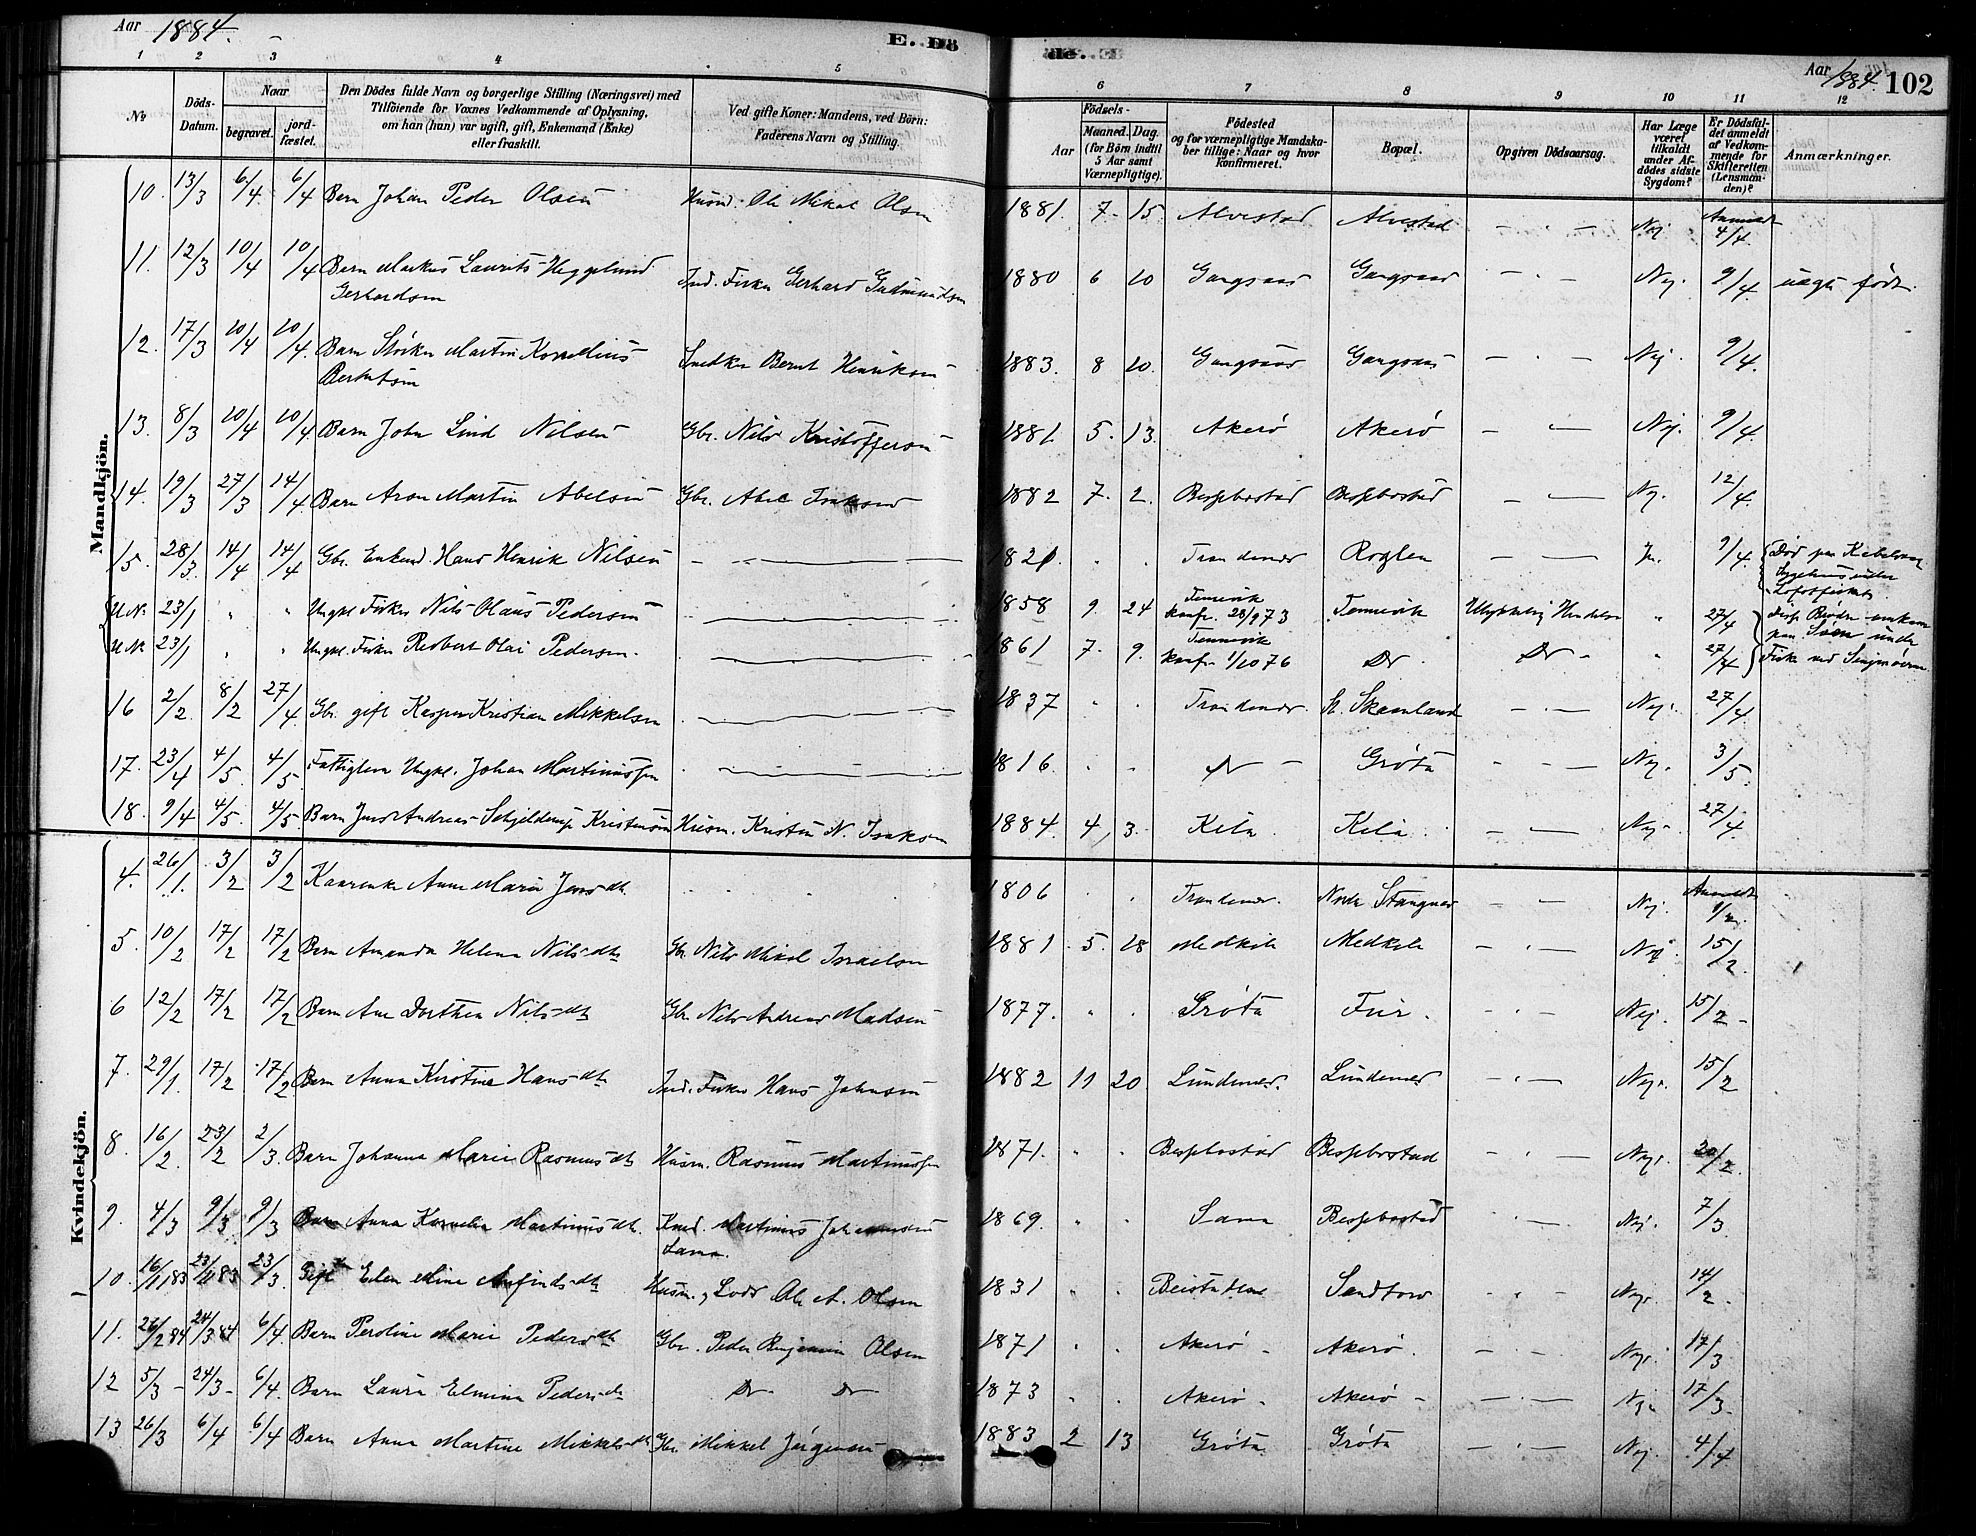 Aar 1884. E. Dö de. Aar 1884. 102
1 2 3 4 5 6 7 8 9 10 11 12
No Döds-Datum. Naar begravet. jordfæstet. Den Dödes fulde Navn og borgerlige Stilling (Næringsvei) med Tilföiende for Voxnes Vedkommende af Oplysning, om han (hun) var ugift, gift, Enkemand (Enke) eller fraskilt. Ved gifte Koner: Mandens, ved Börn: Faderens Navn og Stilling. Födsels- Aar Maaned. Dag. (for Börn indtil 5 Aar samt Værnepligtige). Födested og for værnepligtige Mandskaber tillige: Naar og hvor konfirmeret. Bopæl. Opgiven Dödsaarsag. Har Læge været tilkaldt under Afdödes sidste Sygdom? Er Dödsfaldet anmeldt af Vedkommende for Skifteretten (Lensmanden)? Anmærkninger.
Mandkjön.
10. 13/3 6/4 6/4 Barn Johan Peder Olsen Husmd. Ole Mikal Olsen 1881. 7. 15. Alvestad Alvestad — Nej. Anmeldt 4/4.
11. 12/3 10/4 10/4 Barn Markus Laurits Heggelund Gerhardsen Ind. Fisker Gerhard Gudmundsen 1880 6 10 Gangsaas Gangsaas — Nej. 9/4. uægte født.
12. 17/3 10/4 10/4. Barn Størker Martin Kornelius Berntsen Snedker Bernt Henriksen 1883. 8 10. Gangsaas Gangsaas — Nej. 9/4.
13. 8/3 10/4 10/4 Barn John Lind Nilsen Gbr. Nils Kristoffersen 1881 5. 13. Akerö Akerö — Nej. 9/4.
14. 19/3 27/3 14/4. Barn Aron Martin Abelsen Gbr. Abel Isaksen 1882 7. 2. Bessebostad Bessebostad — Nej. 12/4.
15. 28/3. 14/4 14/4 Gbr. Enkemd. Hans Henrik Nilsen — 1821. Trondenes Roglen — Ja. 9/4. Død paa Kabelvaag Sygehus under Lofotfisket.
U.N. 23/1 " " Ungkl. Fisker Nils Olaus Pedersen — 1858 9. 24 Tennevik konfr. 28/9 73 Tennevik Ulykkelig Hændelse " 27/4 Disse Brødre omkom
U.N. 23/1 " " Ungkl. Fisker Redbert Olai Pedersen. — 1861 7. 9. Tennevik konfr. 1/10 76 Do. Do. " 27/4 paa Søen under Fiske ved Senjenøerne
16 2/2. 8/2 27/4 Gbr. gift Kasper Kristian Mikkelsen — 1837 " " Trondenes. N. Skaanland — Nej. 27/4.
17. 23/4 4/5. 4/5. Fattiglem Ungkl. Johan Martinussen — 1816. " " Do — Gröta — Nej. 3/5.
18. 9/4 4/5. 4/5 Barn Jens Andreas Schjelderup Kristensen Husm. Kristen N. Isaksen 1884. 4, 3. Kila Kila. — Nej. 27/4.
Kvindekjön.
4. 26/1. 3/2 3/2 Kaarenke Anne Maria Jensdtr. 1806 Trondenes. Nordre Stangnes — Nej. Anmeldt 1/2.
5. 10/2 17/2 17/2 Barn Amanda Helena Nilsdtr Gbr. Nils Mikal Israelsen 1881 5. 28 Medkila Medkila — Nej. 15/2.
6 12/2 17/2 17/2 Barn Ane Dorthea Nilsdtr Gbr. Nils Andreas Madsen 1877. " " Gröta Fur. — Nej. 15/2
7. 29/1. 17/2 17/2 Barn Anna Kirstine Hansdtr Ind. Fisker Hans Johnsen 1882 11 20 Lundenes. Lundenes — Nej. 15/2
8. 16/2. 23/2 2/3. Barn Johanna Marie Rasmusdtr Husm. Rasmus Martinussen 1871. " " Bessebostad Bessebostad — Nej. 20/2.
9. 4/3 9/3 9/3 Barn Anna Kornelia Martinusdtr. Husmd. Martinus Johannessen Sama. 1869. " " Sama Bessebostad — Nej. 7/3
10. 16/11 83 23/11 83 23/3. Gift Elen Mine Arfindsdtr Husm., Lods Ole A. Olsen 1831 " " Beistaden Sandtorv — Nej. 14/2.
11. 26/2 84 24/3 84 6/4. Barn Peroline Marie Pedersdtr Gbr. Peder Benjamin Olsen 1871 " " Akerö Akerö. — Nej. 17/3
12 5/3 24/3 6/4. Barn Laura Elmina Pedersdtr Do Do 1873 " Akerö Akerö — Nej. 17/3.
13 26/3 6/4 6/4 Barn Anna Martine Mikkelsdtr Gbr. Mikkel Jörgensen 1883 2 13 Gröta Gröta — Nej. 4/4.